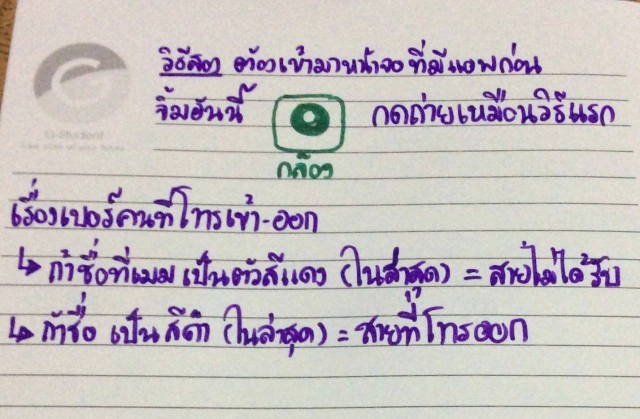 วิธีสอง ต้องเข้ามาหน้าจอที่มีแอพก่อน
จิ้มอันนี้ กดถ่ายเหมือนวิธีแรก
กล้อง
G-Student
เรื่องเบอร์คนที่โทรเข้า-ออก
↳ ถ้าชื่อที่เมมเป็นตัวสีแดง (ในล่าสุด) = สายไม่ได้รับ
↳ ถ้าชื่อ เป็นสีดำ (ในล่าสุด) = สายที่โทรออก